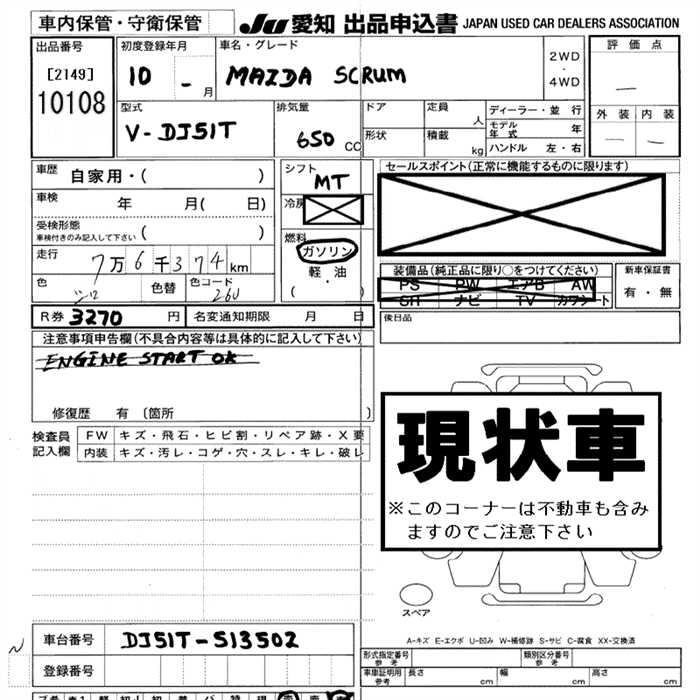 車内保管・守衛保管 JU 愛知 出品申込書 JAPAN USED CAR DEALERS ASSOCIATION
出品番号 初度登録年月 車名・グレード 2WD・4WD 評価点
[2149] 10 - 月 MAZDA SCRUM —
10108 型式 排気量 ドア 定員 人 ディーラー・並行 外装 内装
V-DJ51T 650 CC 形状 積載 kg モデル年式 年 — —
ハンドル 左・右
車歴 自家用・( ) シフト MT セールスポイント(正常に機能するものに限ります)
車検 年 月( 日) 冷房
受検形態 車検付きのみ記入して下さい ( ) 燃料
走行 7万6千374km ガソリン 装備品(純正品に限り○をつけてください) 新車保証書
色 シロ 色替 色コード 26U 軽・油 ( ) PS PW エアB AW 有・無
SR ナビ TV カワシート
R券 3270 円 名変通知期限 月 日 後日品
注意事項申告欄(不具合内容等は具体的に記入して下さい)
ENGINE START OK
修復歴 有 (箇所 )
現状車
※このコーナーは不動車も含み
ますのでご注意下さい
検査員 FW キズ・飛石・ヒビ割・リペア跡・X要
記入欄 内装 キズ・汚レ・コゲ・穴・スレ・キレ・破レ
スペア
A-キズ E-エクボ U-凹み W-補修跡 S-サビ C-腐食 XX-交換済
車台番号 DJ51T-513502 形式指定番号 参考 類別区分番号 参考
登録番号 車庫証明用 参考 長さ cm 幅 cm 高さ cm